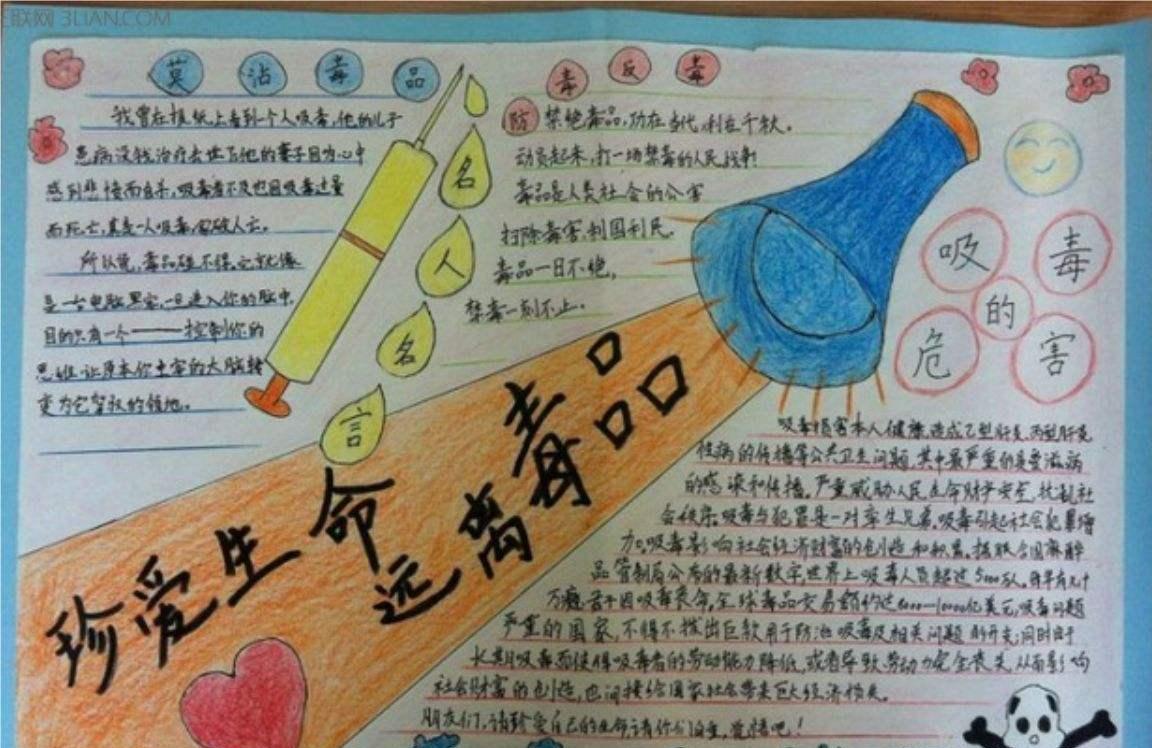 联网 3LIAN.COM
莫沾毒品
我曾在报纸上看到一个人吸毒,他的儿子
患病没钱治疗去世了他的妻子因为心中
感到悲愤而自杀,吸毒者不及也因吸毒过量
而死亡,真是一人吸毒,家破人亡。
所以说,毒品碰不得,它就像
是一台电脑黑客,一旦进入你的脑中,
目的只有一个———控制你的
思维让原本你主宰的大脑转
变为它驾驭的领地。
名人名言
防毒反毒
禁绝毒品,功在当代,利在千秋。
动员起来,打一场禁毒的人民战争
毒品是人类社会的公害
扫除毒害,利国利民。
毒品一日不绝,
禁毒一刻不止。
珍爱生命
远离毒品
吸毒的危害
吸毒损害本人健康,造成乙型肝炎、丙型肝炎
性病的传播等公共卫生问题,其中最严重的是爱滋病
的感染和传播。严重威胁人民生命财产安全,扰乱社
会秩序,吸毒与犯罪是一对孪生兄弟,吸毒引起社会犯罪增
加。吸毒影响社会经济财富的创造和积累,据联合国麻醉
品管制局公布的最新数字,世界上吸毒人员超过5000万,每年有几十
万瘾君子因吸毒丧命,全球毒品交易额约达8000—10000亿美元,吸毒问题
严重的国家,不得不拨出巨款用于防治吸毒及相关问题的开支;同时由于
长期吸毒而使得吸毒者的劳动能力降低,或者导致劳动力完全丧失,从而影响
社会财富的创造,也间接给国家社会带来巨大经济损失。
朋友们,请珍爱自己的生命,请你们自重,觉悟吧!